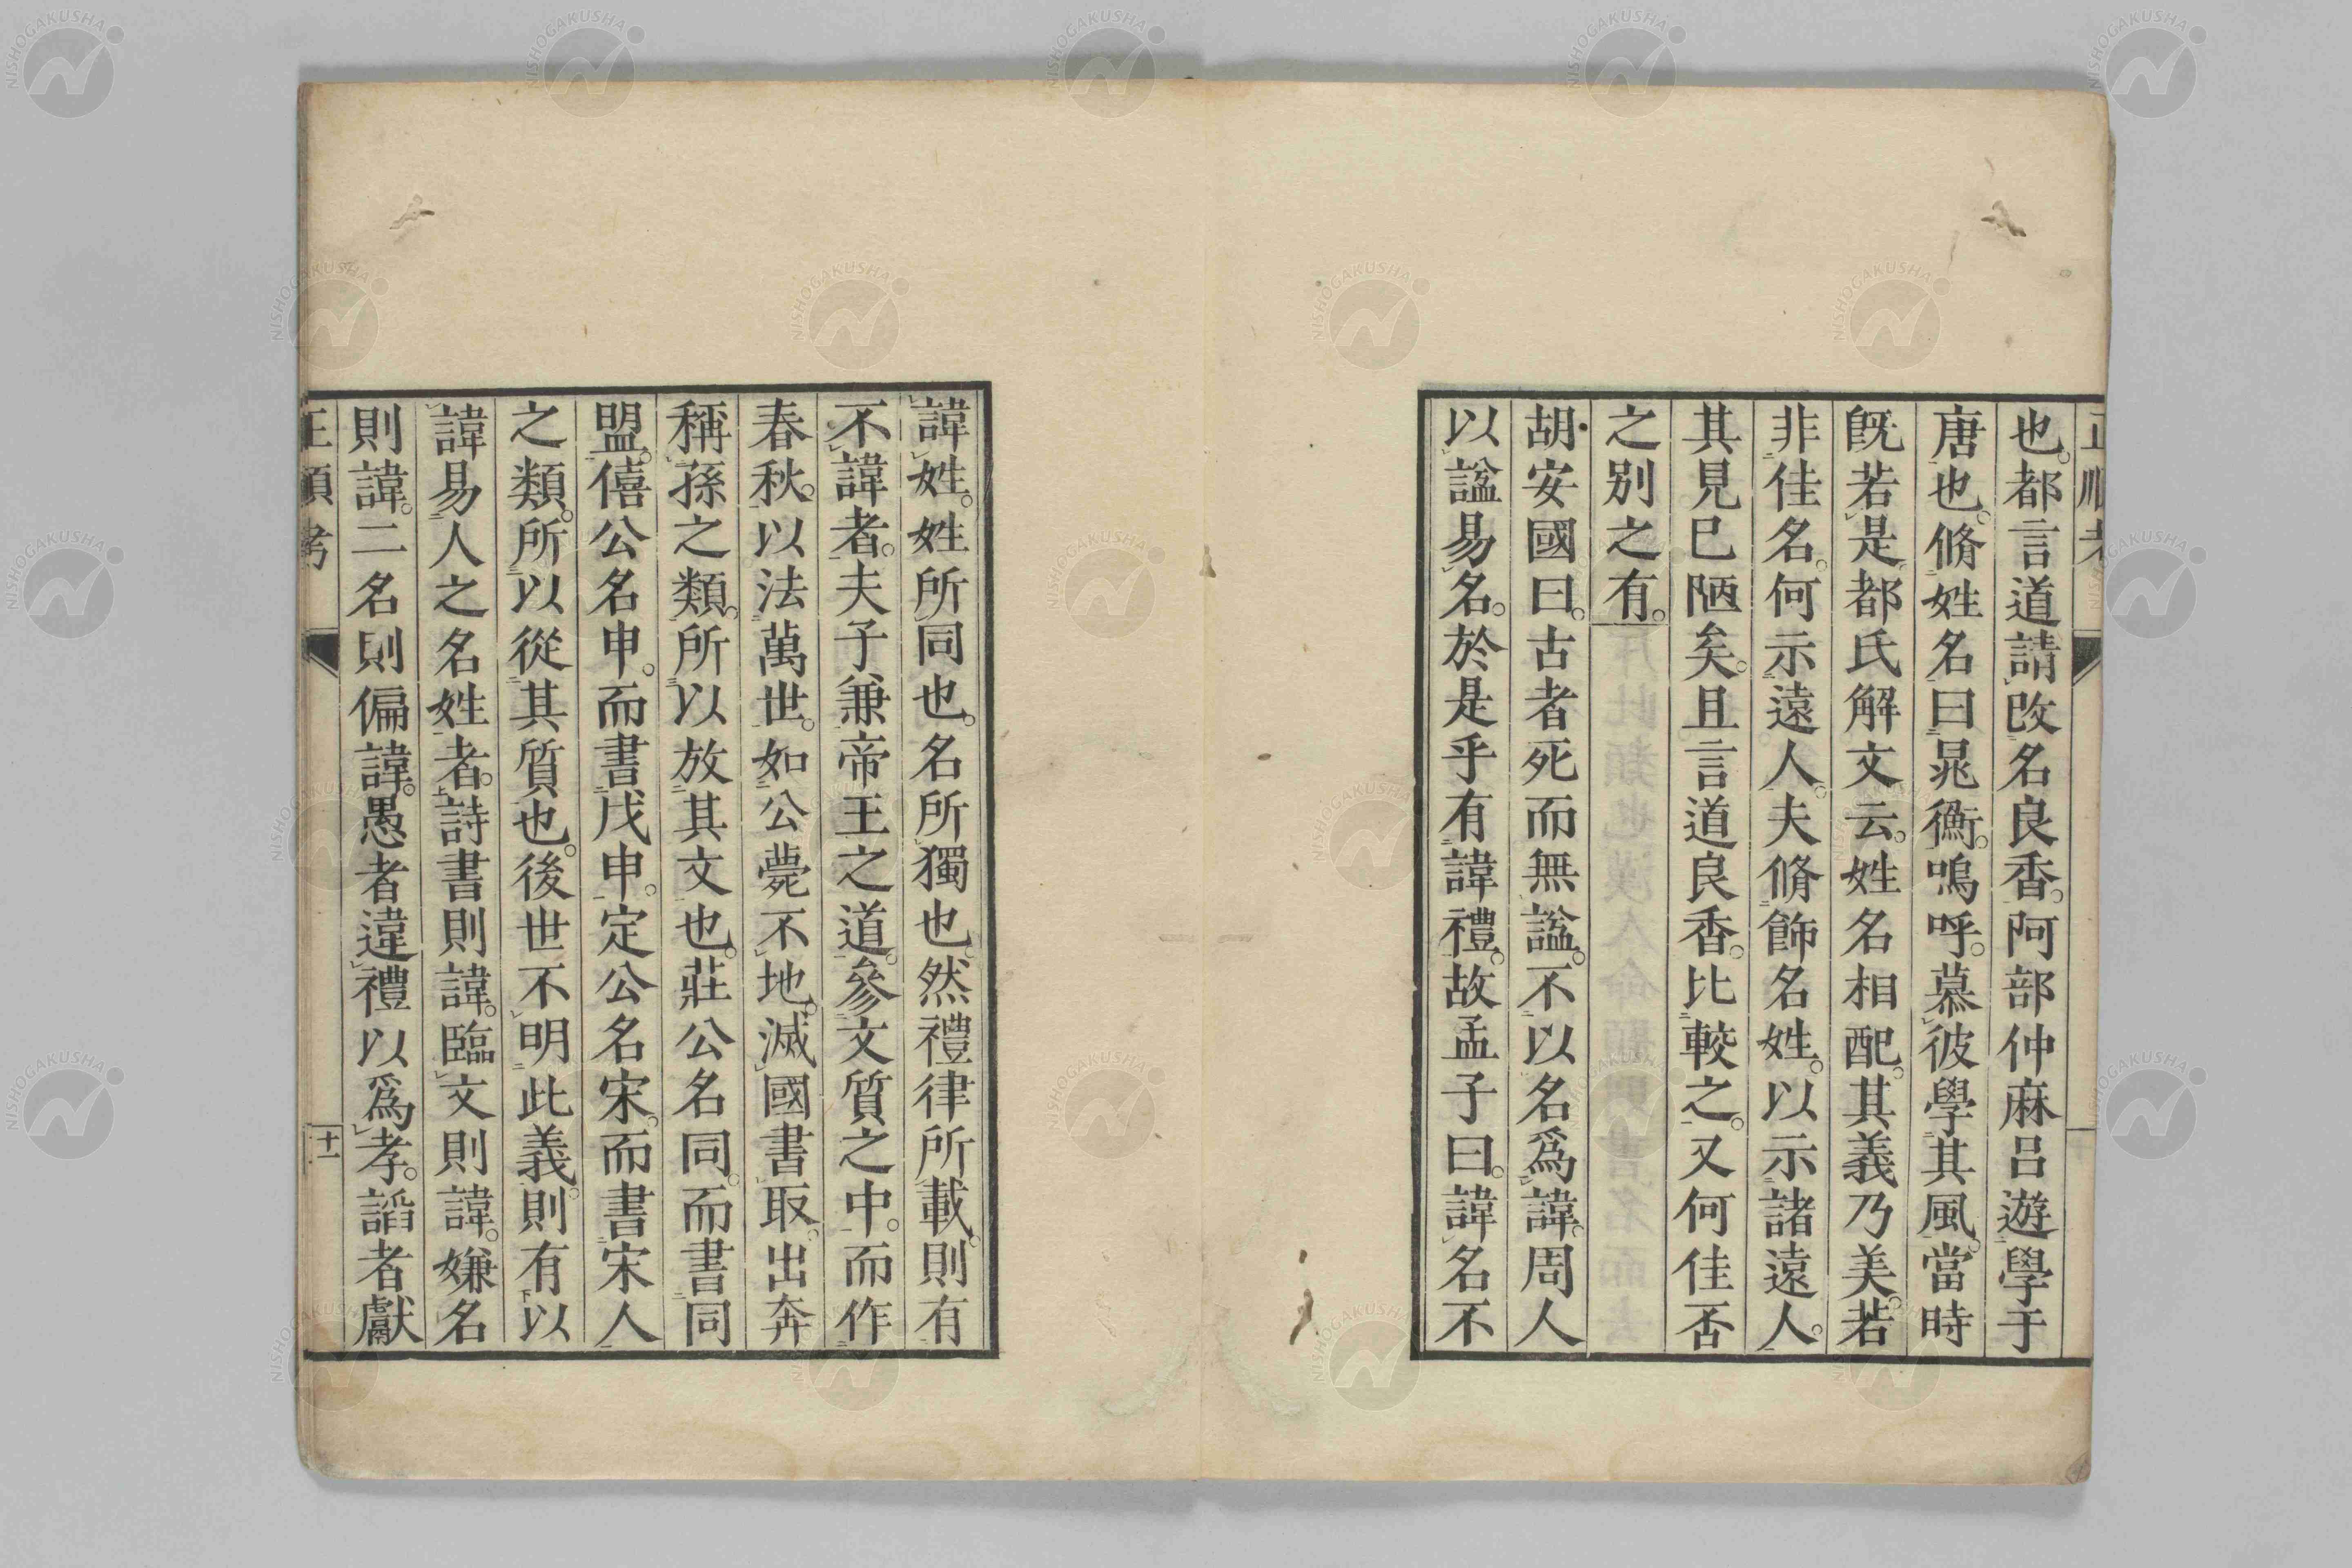 也。都言道請改名良香。阿部仲麻呂遊學于
唐也。脩姓名曰晁衡。嗚呼。慕彼學其風。當時
既若是。都氏解文云。姓名相配。其義乃美。若
非佳名。何示遠人。夫脩飾名姓。以示諸遠人。
其見已陋矣。且言道良香。比較之。又何佳否
之別之有。
胡安國曰。古者死而無諡。不以名爲諱。周人
以諡易名。於是乎有諱禮。故孟子曰。諱名不
諱姓。姓所同也。名所獨也。然禮律所載。則有
不諱者。夫子兼帝王之道。參文質之中。而作
春秋。以法萬世。如公薨不地。滅國書取。出奔
稱孫之類。所以放其文也。莊公名同。而書同
盟。僖公名申。而書戊申。定公名宋。而書宋人
之類。所以從其質也。後世不明此義。則有以
諱易人之名姓者。詩書則諱。臨文則諱。嫌名
則諱。二名則偏諱。愚者違禮以爲孝。謟者獻
正順考
十一
NISHOGAKUSHA